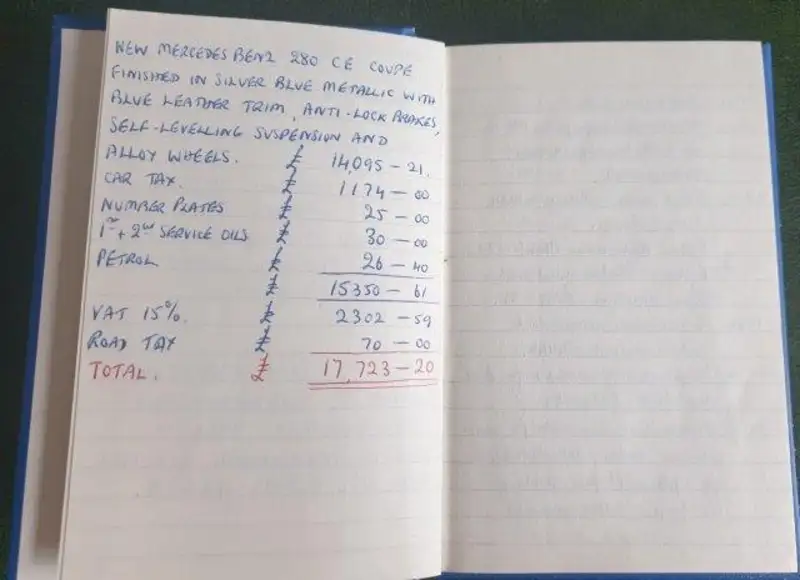 NEW MERCEDES BENZ 280 CE COUPE
FINISHED IN SILVER BLUE METALLIC WITH
BLUE LEATHER TRIM, ANTI-LOCK BRAKES,
SELF-LEVELLING SUSPENSION AND
ALLOY WHEELS. £ 14,095-21.
CAR TAX. £ 1174-00
NUMBER PLATES £ 25-00
1ST + 2ND SERVICE OILS £ 30-00
PETROL £ 26-40
£ 15350-61
VAT 15%. £ 2302-59
ROAD TAX £ 70-00
TOTAL. £ 17,723-20